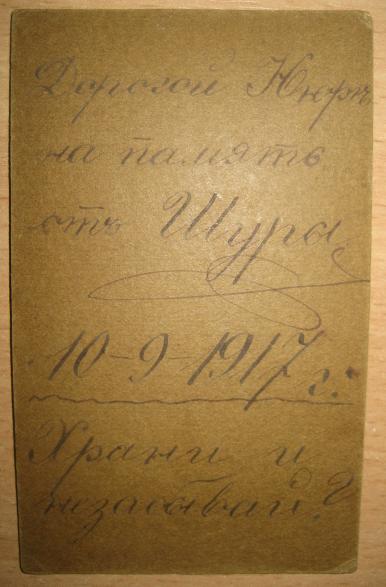 Дорогой Нюрѣ
на память
отъ Шура
10-9-1917 г.
Храни и
незабывай.?